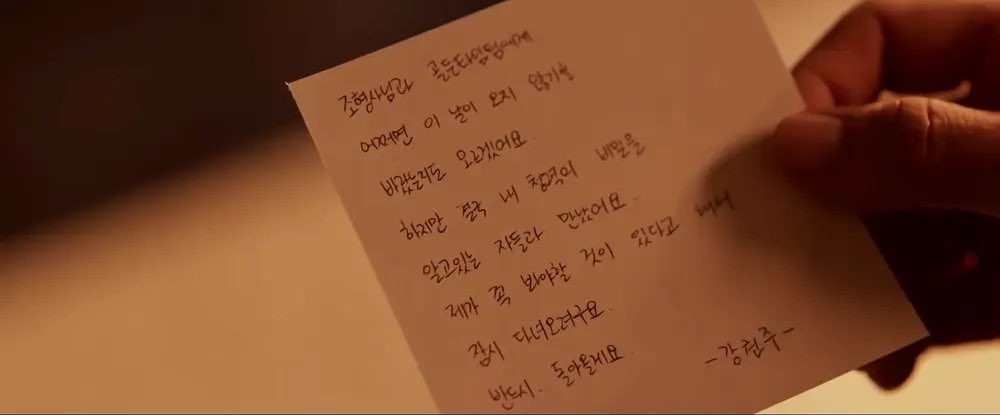 조형사님과 골든타임팀에게
어쩌면 이 날이 오지 않기를
바랬는지도 모르겠어요.
하지만 결국 내 청력의 비밀을
알고있는 자들과 만났어요.
제가 꼭 봐야할 것이 있다고 해서
잠시 다녀오려구요.
반드시.. 돌아올게요.
-강권주-